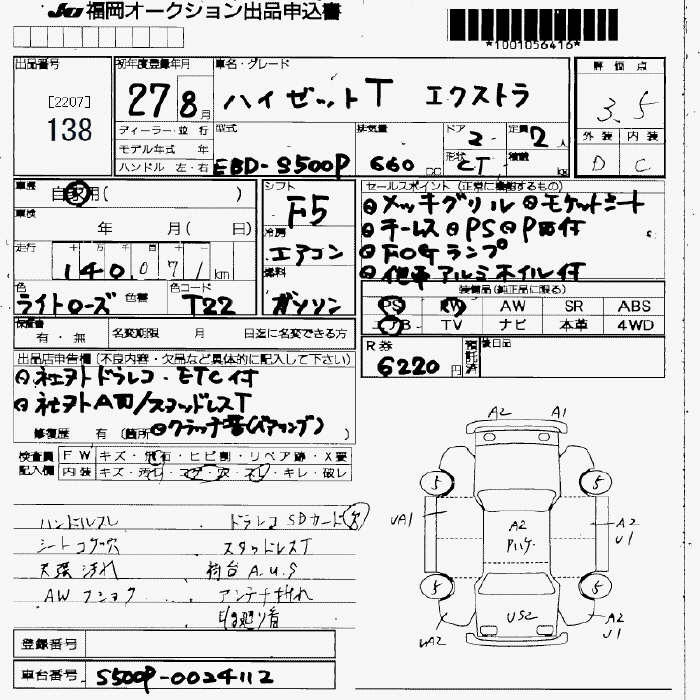 JU 福岡オークション出品申込書
*1001056416*
出品番号 [2207] 138
初年度登録年月 27 8月
車名・グレード ハイゼットT エクストラ
評価点 3.5
外装 内装
D C
ディーラー・並行
モデル年式 年
ハンドル 左・右
型式 EBD-S500P
排気量 660 CC
ドア 2
定員 2人
形状 CT
積載 kg
車歴 自家用( )
車検 年 月( 日)
走行 十 万 千 百 十 一
140,071 km
色 ライトローズ 色替
色コード T22
シフト F5
冷房 エアコン
燃料 ガソリン
セールスポイント (正常に機能するもの)
メッキグリル
キーレス PS PW付
FOGランプ
他車アルミホイル付
装備品(純正品に限る)
PS PW AW SR ABS
エアB TV ナビ 本革 4WD
保証書 有・無
名変期限 月 日迄に名変できる方
R券 6220円 預託済
後日品
出品店申告欄 (不良内容・欠品など具体的に記入して下さい)
社外ドラレコ・ETC付
社外AW/スタッドレスT
クラッチ音(ベアリング)
修復歴 有 (箇所 )
検査員記入欄
FW キズ・飛石・ヒビ割・リペア跡・X要
内装 キズ・汚レ・コゲ・穴・スレ・キレ・破レ
ハンドルスレ ドラレコSDカード欠
シートコゲ穴 スタッドレスT
天張汚れ 荷台A.U.S
AWフショク アンテナ折れ
A2 A1
5 5
UA1
A2
A2 U1
5 5
US2
UA2
A2 U1
登録番号
車台番号 S500P-0024112